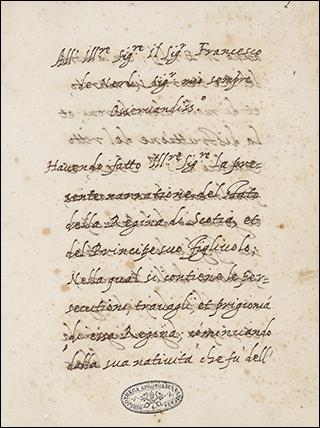 All' Ill.re Sig.re il Sig.r Francesco
de Nerli Sig.r mio sempre
Osservandiss.o
Havendo fatto Ill.re Sig.re la pre-
sente narratione del stato
della Regina di Scotia, et
del Principe suo figliuolo;
Nella qual si contiene le per-
secutioni, travagli, et prigionia
di essa Regina, cominciando
dalla sua natività che fu dell'